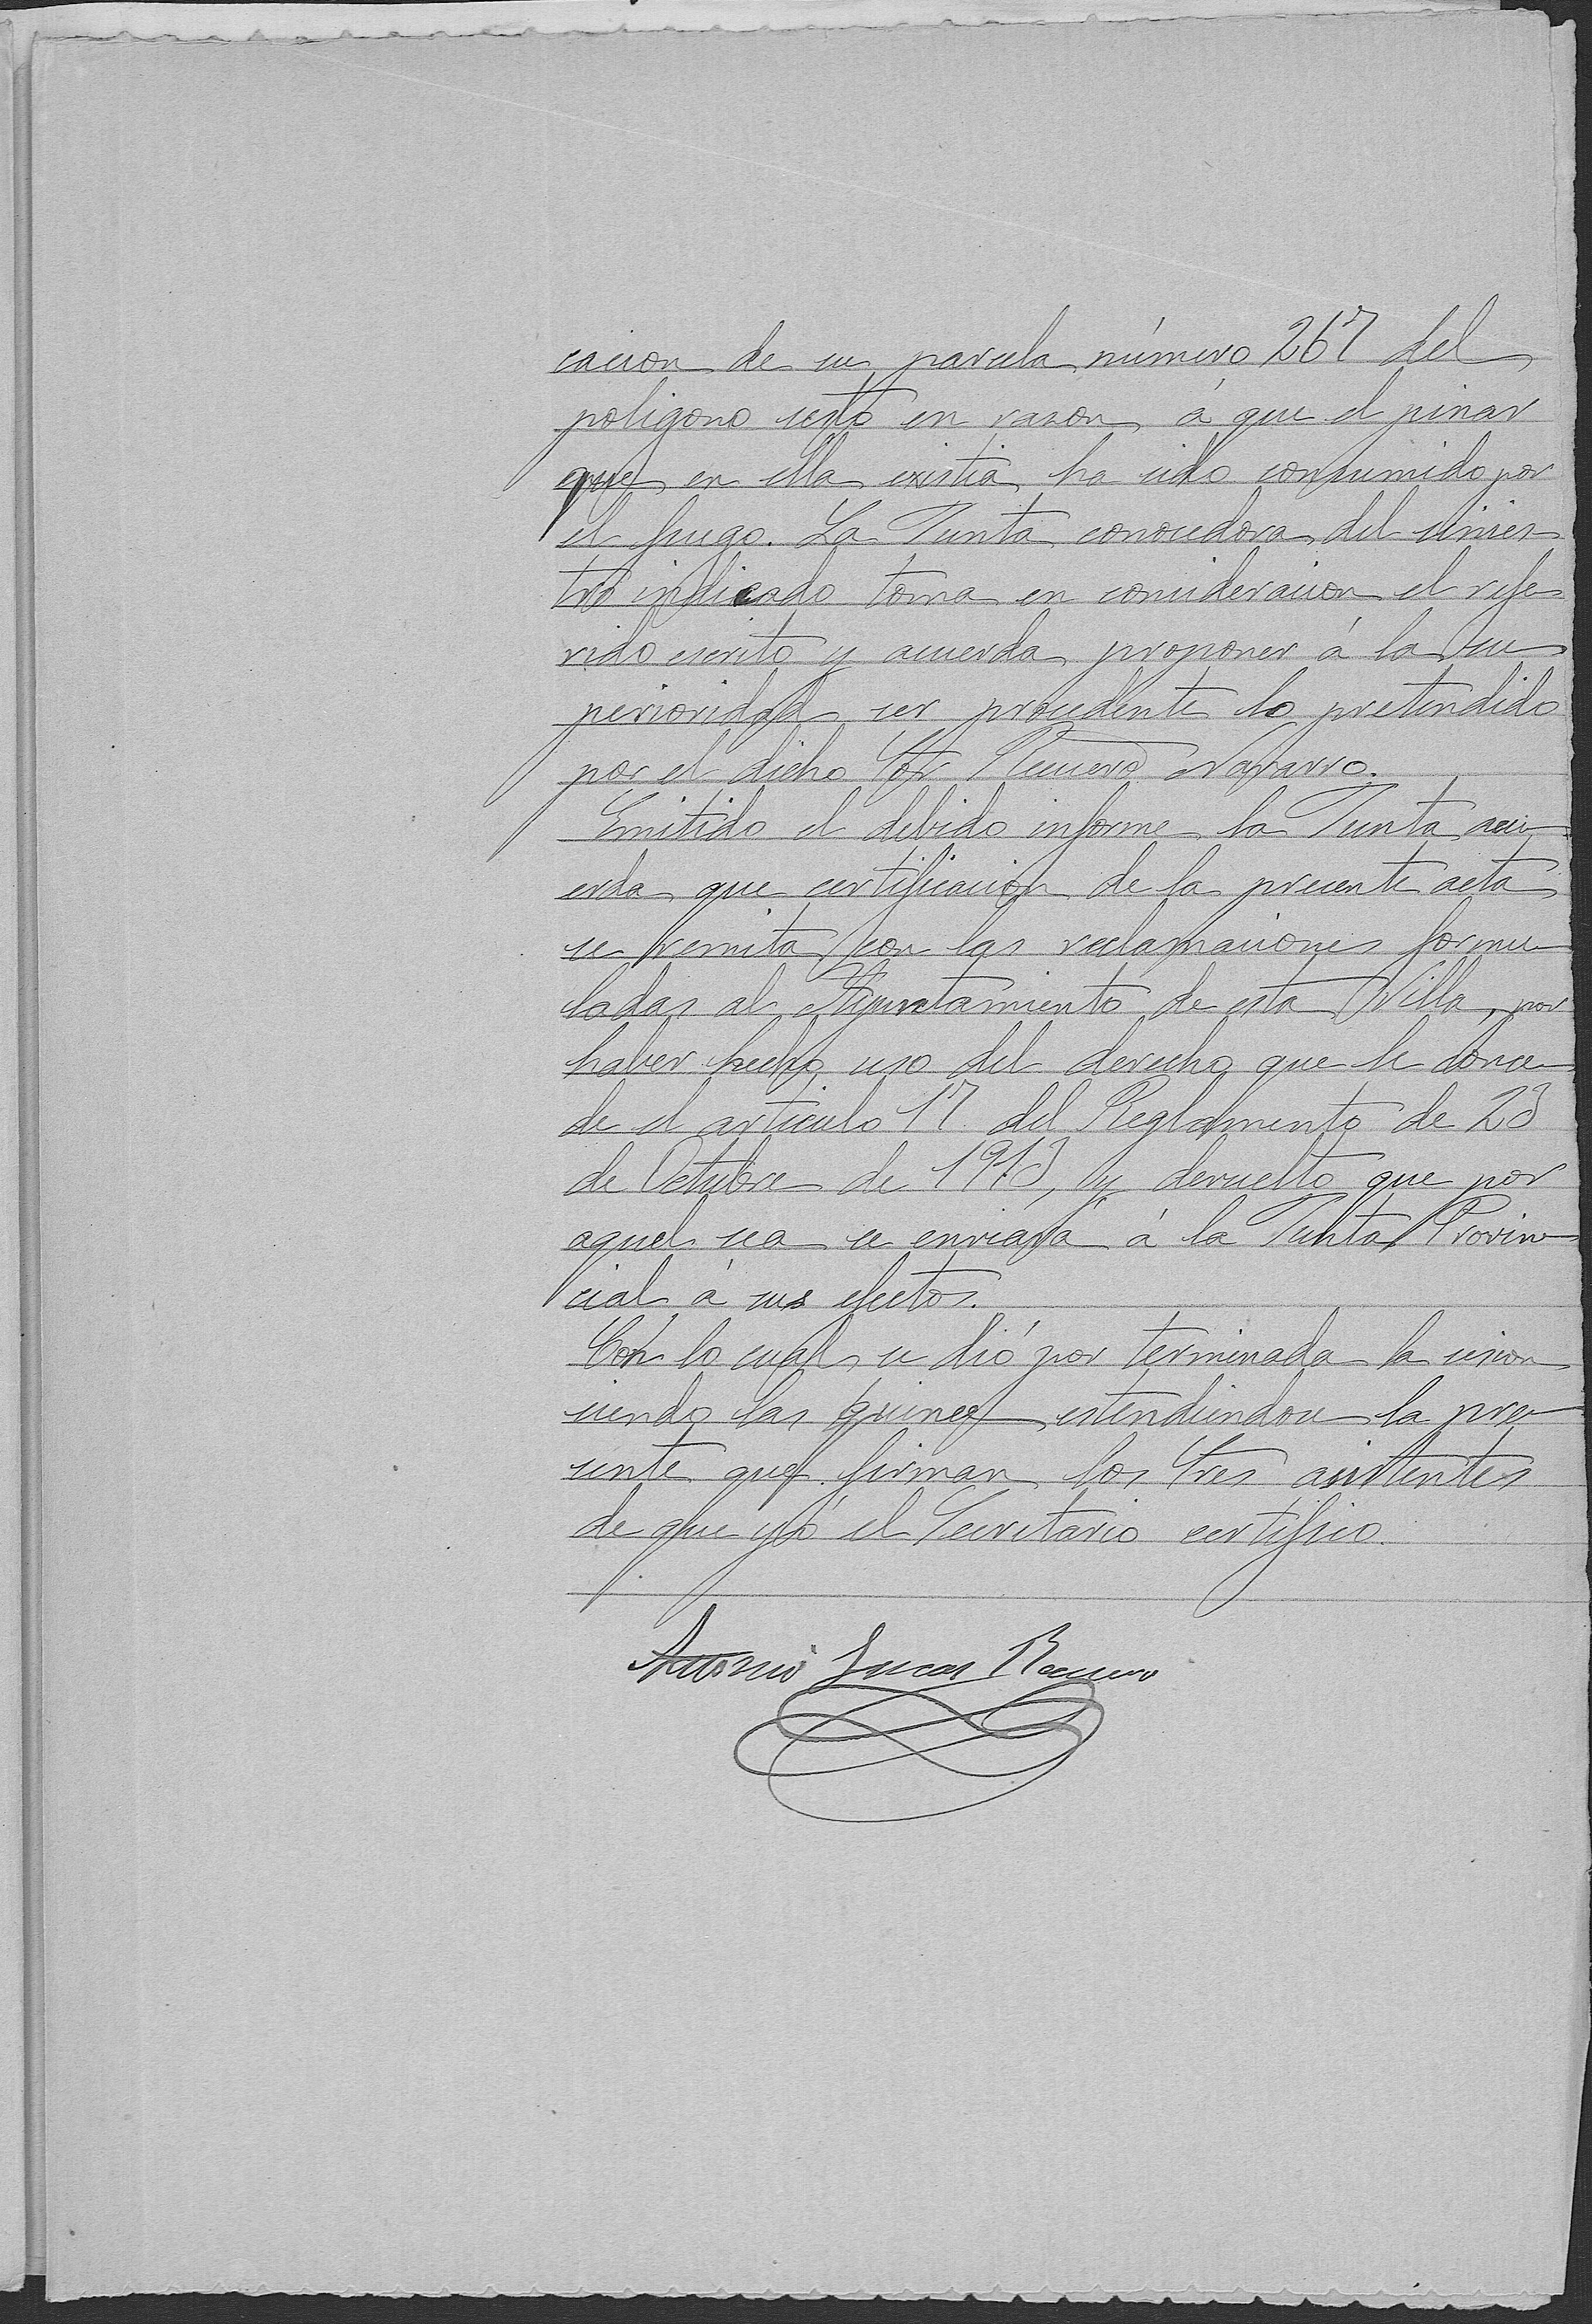 cacion de su parcela número 267 del
poligono sexto en razon á que el pinar
que en ella existia ha sido consumido por
el fuego. La Junta conocedora del sinies
tro indicado toma en consideracion el refe
rido escrito y acuerda proponer á la su
perioridad ser procedente lo pretendido
por el dicho Sor Recuero Navarro.
Emitido el debido informe la Junta acu
erda que certificacion de la presente acta
se remita con las reclamaciones formu
ladas al Ayuntamiento de esta Villa, por
haber hecho uso del derecho que le conce
de el articulo 17 del Reglamento de 23
de Octubre de 1913, y devuelto que por
aquel sea se enviará á la Junta Provin
cial á sus efectos.
Con lo cual se dió por terminada la sesion
siendo las quince estendiendose la pre
sente que firman los Sres asistentes
de que yó el Secretario certifico.
Antonio Lucas Recuero